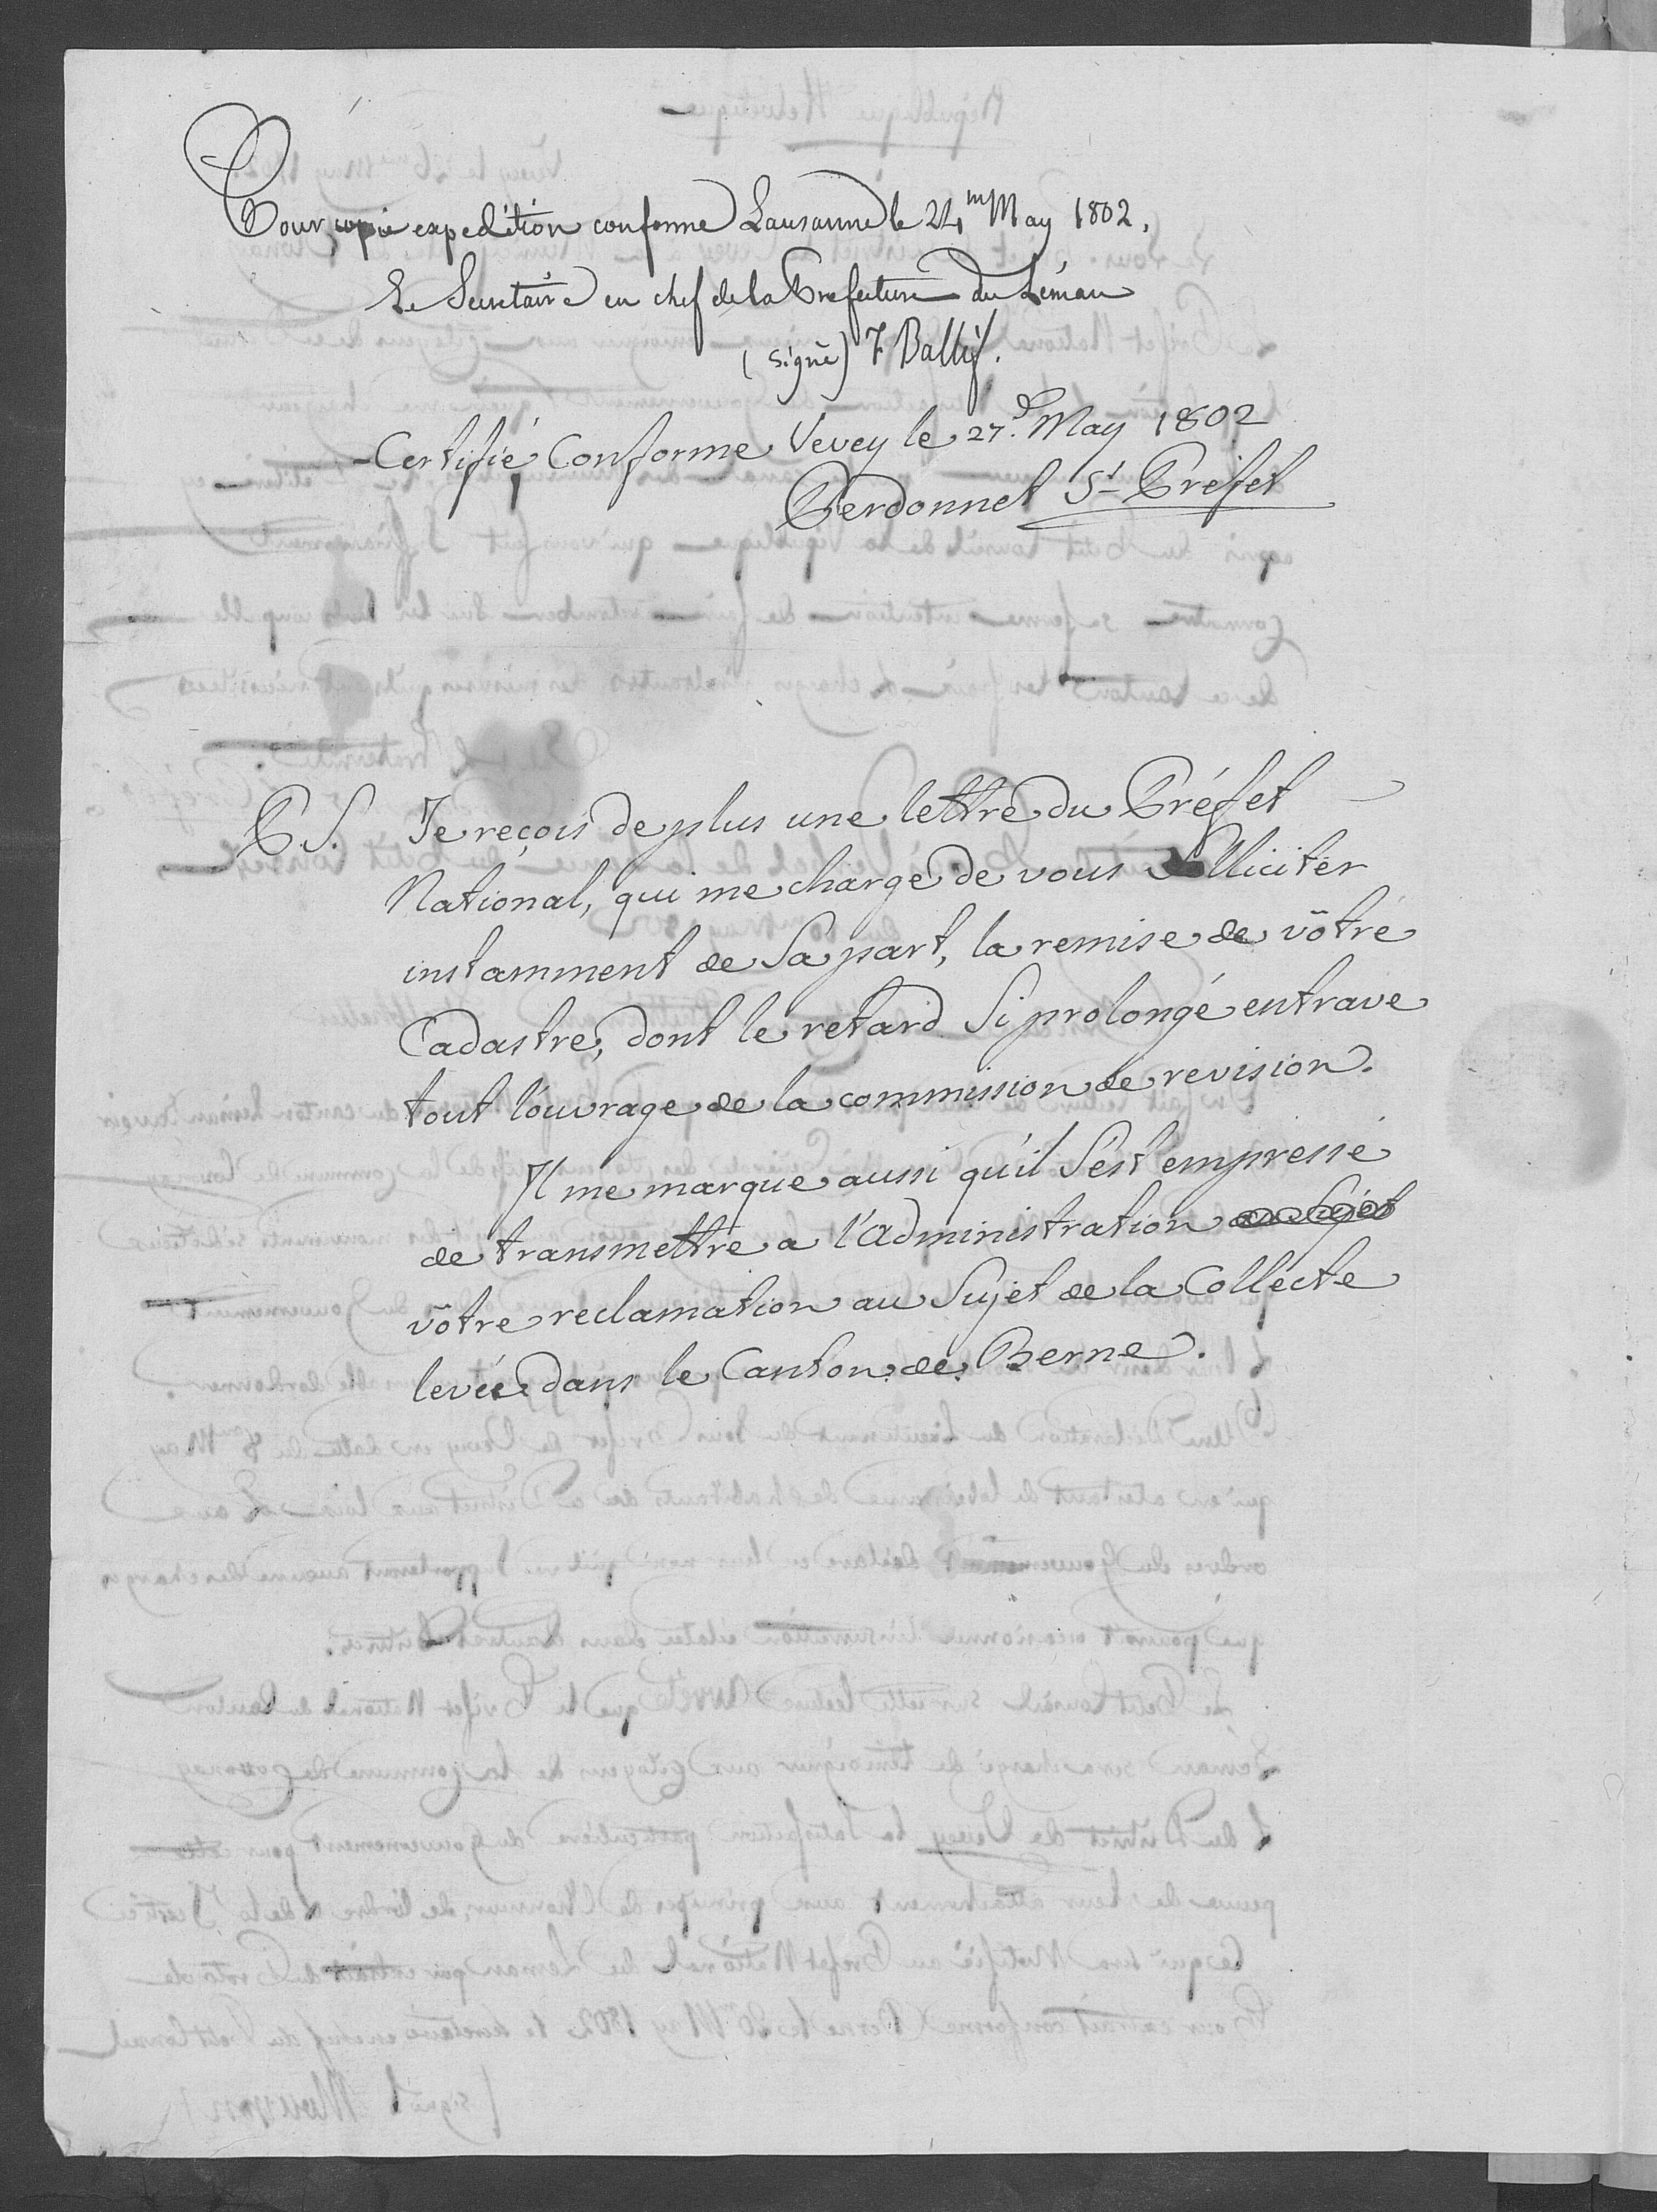 Pour copie expedition conforme Lausanne le 24me May 1802.
Le Secretaire en chef de la Prefecture du Léman
(signé) F Ballif.
Certifié Conforme Vevey le 27.e May 1802
Perdonnet St Préfet
P S. Je reçois de plus une lettre du Préfet
National, qui me charge de vous solliciter
instamment de Sa part, la remise de vôtre
Cadastre, dont le retard Si prolongé entrave
tout l'ouvrage de la commission de revision.
Il me marque aussi qu'il S'est empressé
de transmettre a l'Administration au Sujet
vôtre reclamation au Sujet de la Collecte
levée dans le Canton de Berne.